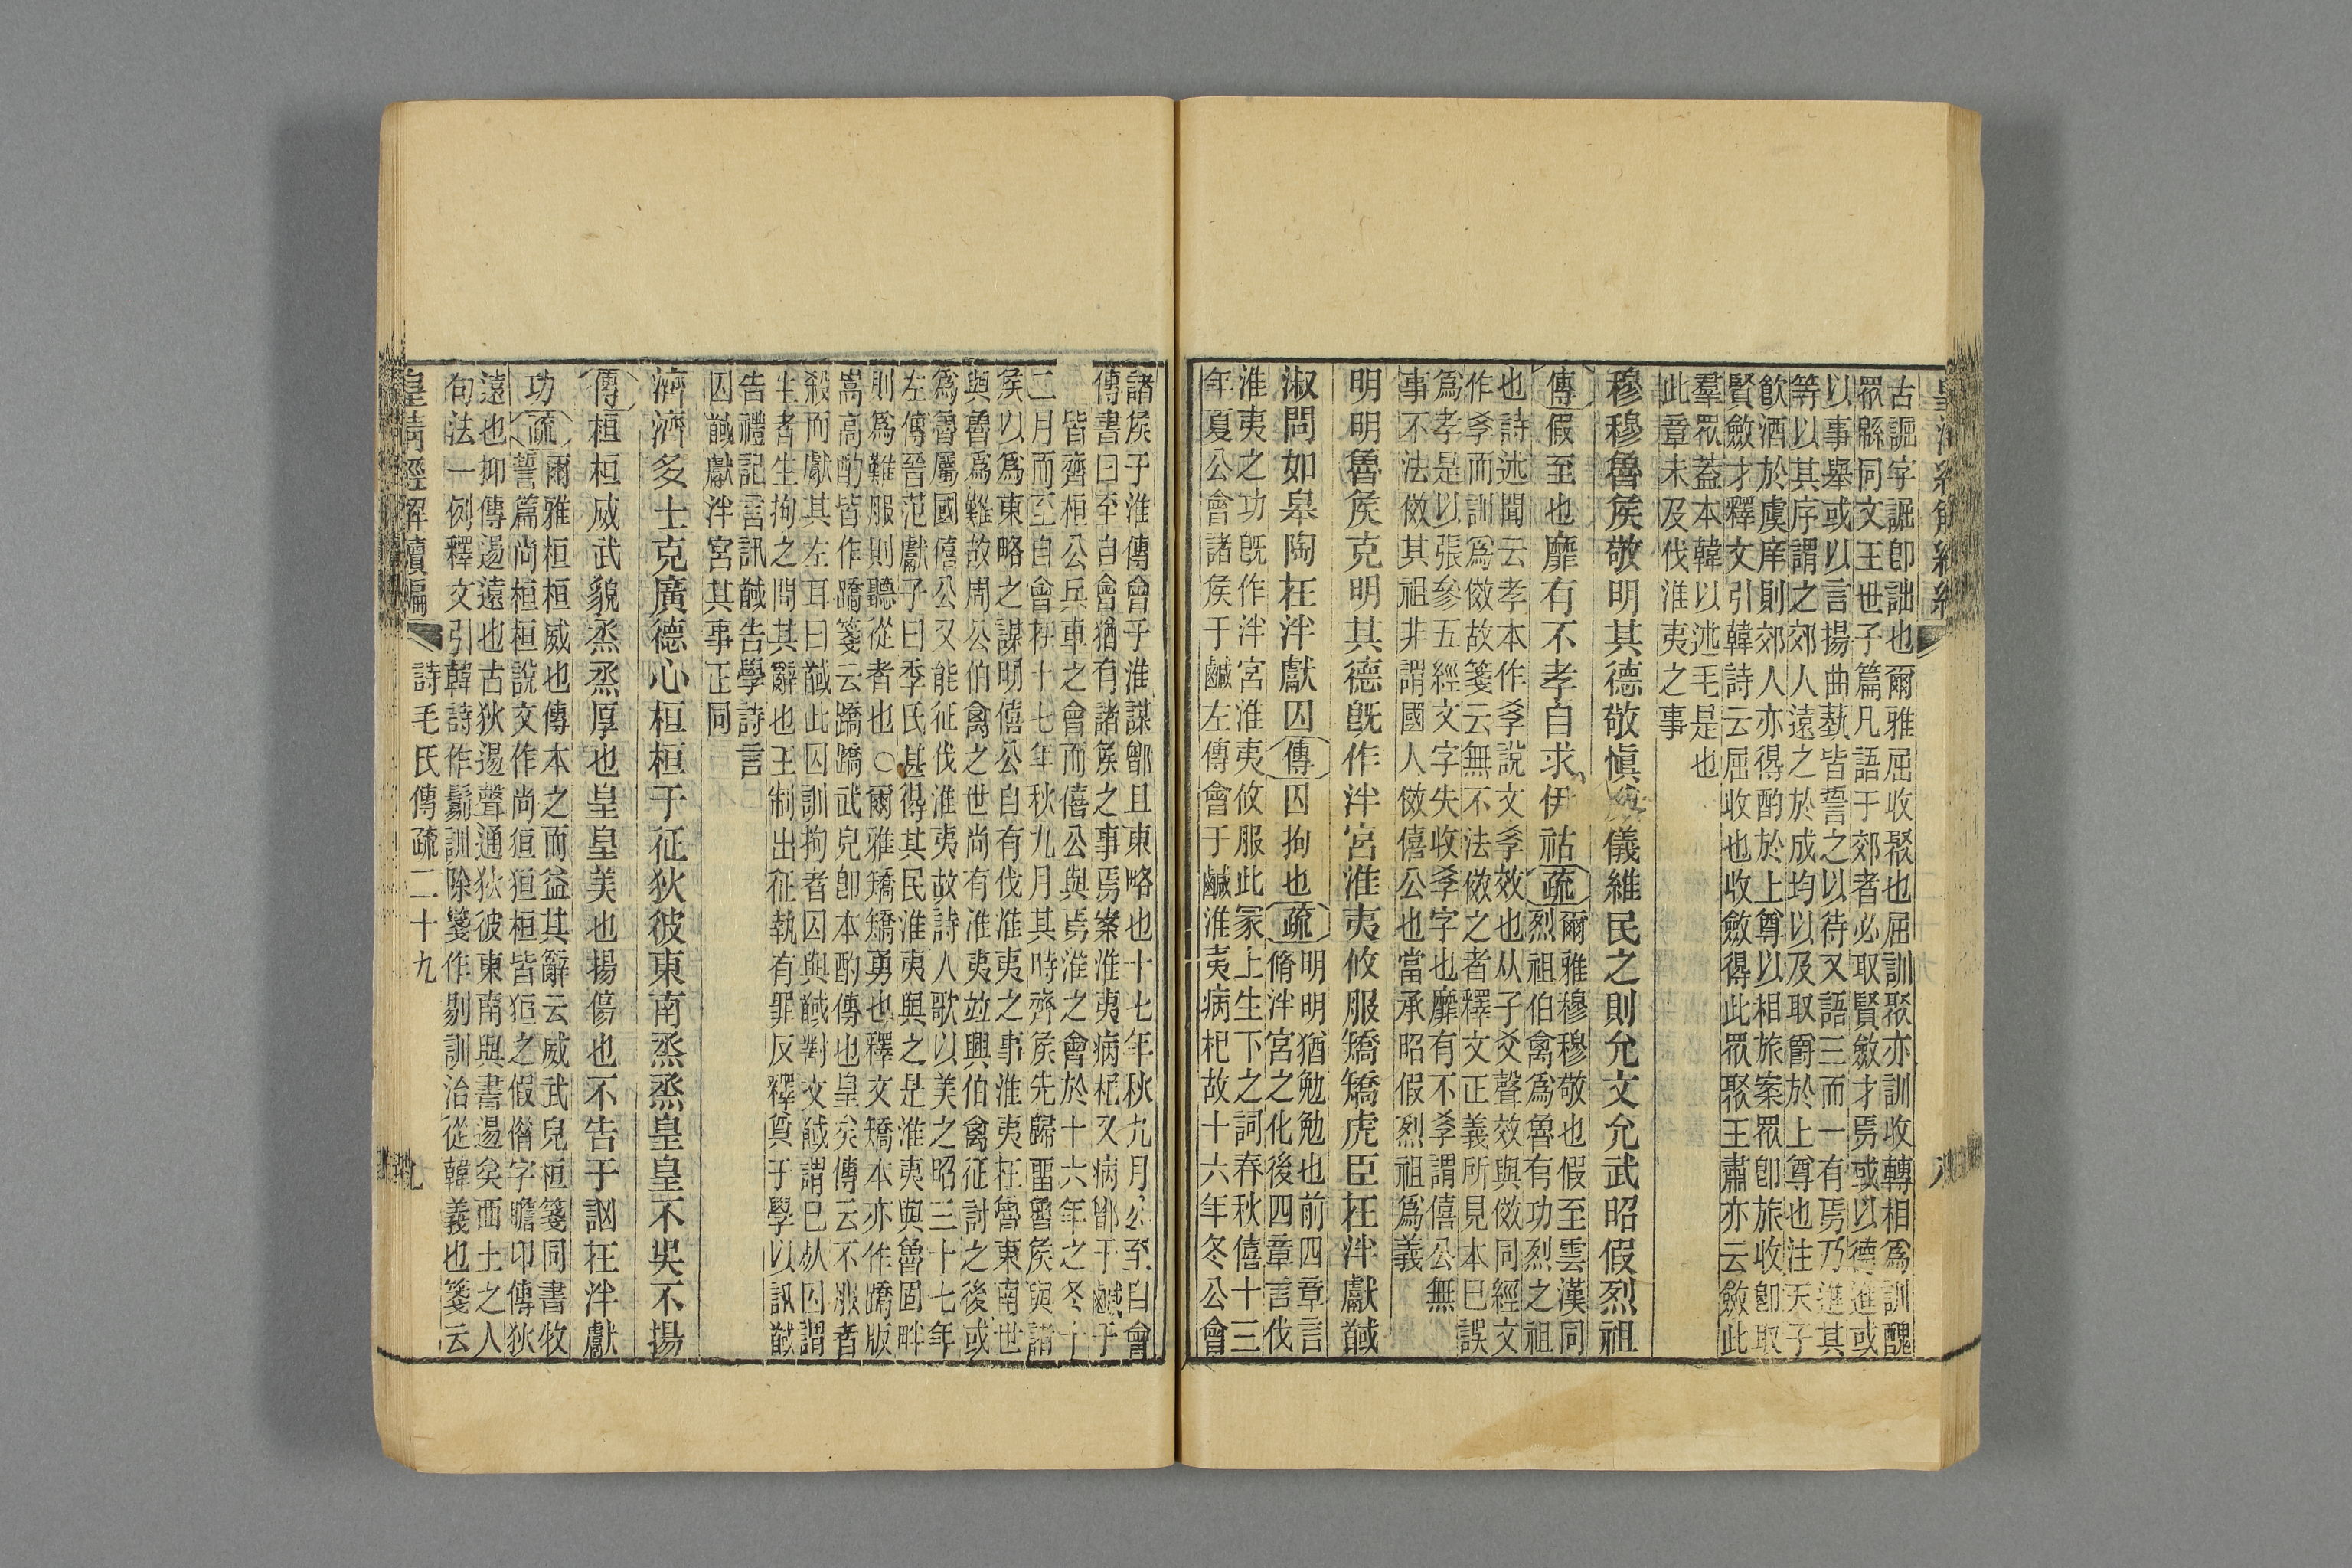 古誳字誳卽詘也爾雅屈收聚也屈訓聚亦訓收轉相爲訓醜
眾緜同文王世子篇凡語于郊者必取賢斂才焉或以德進或
以事舉或以言揚曲埶皆誓之以待又語三而一有焉乃進其
等以其序謂之郊人遠之於成均以及取爵於上尊也注天子
飮酒於虞庠則郊人亦得酌於上尊以相旅案眾卽旅收卽取
賢斂才釋文引韓詩云屈收也收斂得此眾聚王肅亦云斂此
羣眾葢本韓以述毛是也
此章未及伐淮夷之事
穆穆魯矦敬明其德敬愼威儀維民之則允文允武昭假烈祖
傳假至也靡有不孝自求伊祜疏爾雅穆穆敬也假至雲漢同
烈祖伯禽爲魯有功烈之祖
也詩述聞云孝本作𡥉說文𡥉效也从子爻聲效與傚同經文
作𡥉而訓爲傚故箋云無不法傚之者釋文正義所見本已誤
爲孝是以張參五經文字失收𡥉字也靡有不𡥉謂僖公無
事不法傚其祖非謂國人傚僖公也當承昭假烈祖爲義
明明魯矦克明其德旣作泮宮淮夷攸服矯矯虎臣在泮獻馘
淑問如皋陶在泮獻囚傳囚拘也疏明明猶勉勉也前四章言
脩泮宮之化後四章言伐
淮夷之功旣作泮宮淮夷攸服此冡上生下之詞春秋僖十三
年夏公會諸矦于鹹左傳會于鹹淮夷病杞故十六年冬公會
諸矦于淮傳會于淮謀鄫且東略也十七年秋九月公至自會
傳書曰至自會猶有諸矦之事焉案淮夷病杞又病鄫于鹹于
皆齊桓公兵車之會而僖公與焉淮之會於十六年之冬十
二月而至自會在十七年秋九月其時齊矦先歸畱魯矦與諸
矦以爲東略之謀明僖公自有伐淮夷之事淮夷在魯東南世
與魯爲難故周公伯禽之世尚有淮夷竝興伯禽征討之後或
爲魯屬國僖公又能征伐淮夷故詩人歌以美之昭二十七年
左傳晉范獻子曰季氏甚得其民淮夷與之是淮夷與魯固畔
則爲難服則聽從者也○爾雅矯矯勇也釋文矯本亦作蹻版
嵩高酌皆作蹻箋云蹻蹻武皃卽本酌傳也皇矣傳云不服者
殺而獻其左耳曰馘此囚訓拘者囚與馘對文馘謂已殺囚謂
生者生拘之問其辭也王制出征執有罪反釋奠于學以訊馘
告禮記言訊馘告學詩言
囚馘獻泮宮其事正同
濟濟多士克廣德心桓桓于征狄彼東南烝烝皇皇不吳不揚
傳桓桓威武貌烝烝厚也皇皇美也揚傷也不告于訩在泮獻
功疏爾雅桓桓威也傳本之而益其辭云威武皃桓箋同書牧
誓篇尚桓桓說文作尚狟狟桓皆狟之假借字瞻卬傳狄
遠也抑傳逷遠也古狄逷聲通狄彼東南與書逷矣西土之人
句法一例釋文引韓詩作鬄訓除箋作剔訓治從韓義也箋云
皇淸經解續編
詩毛氏傳疏二十九